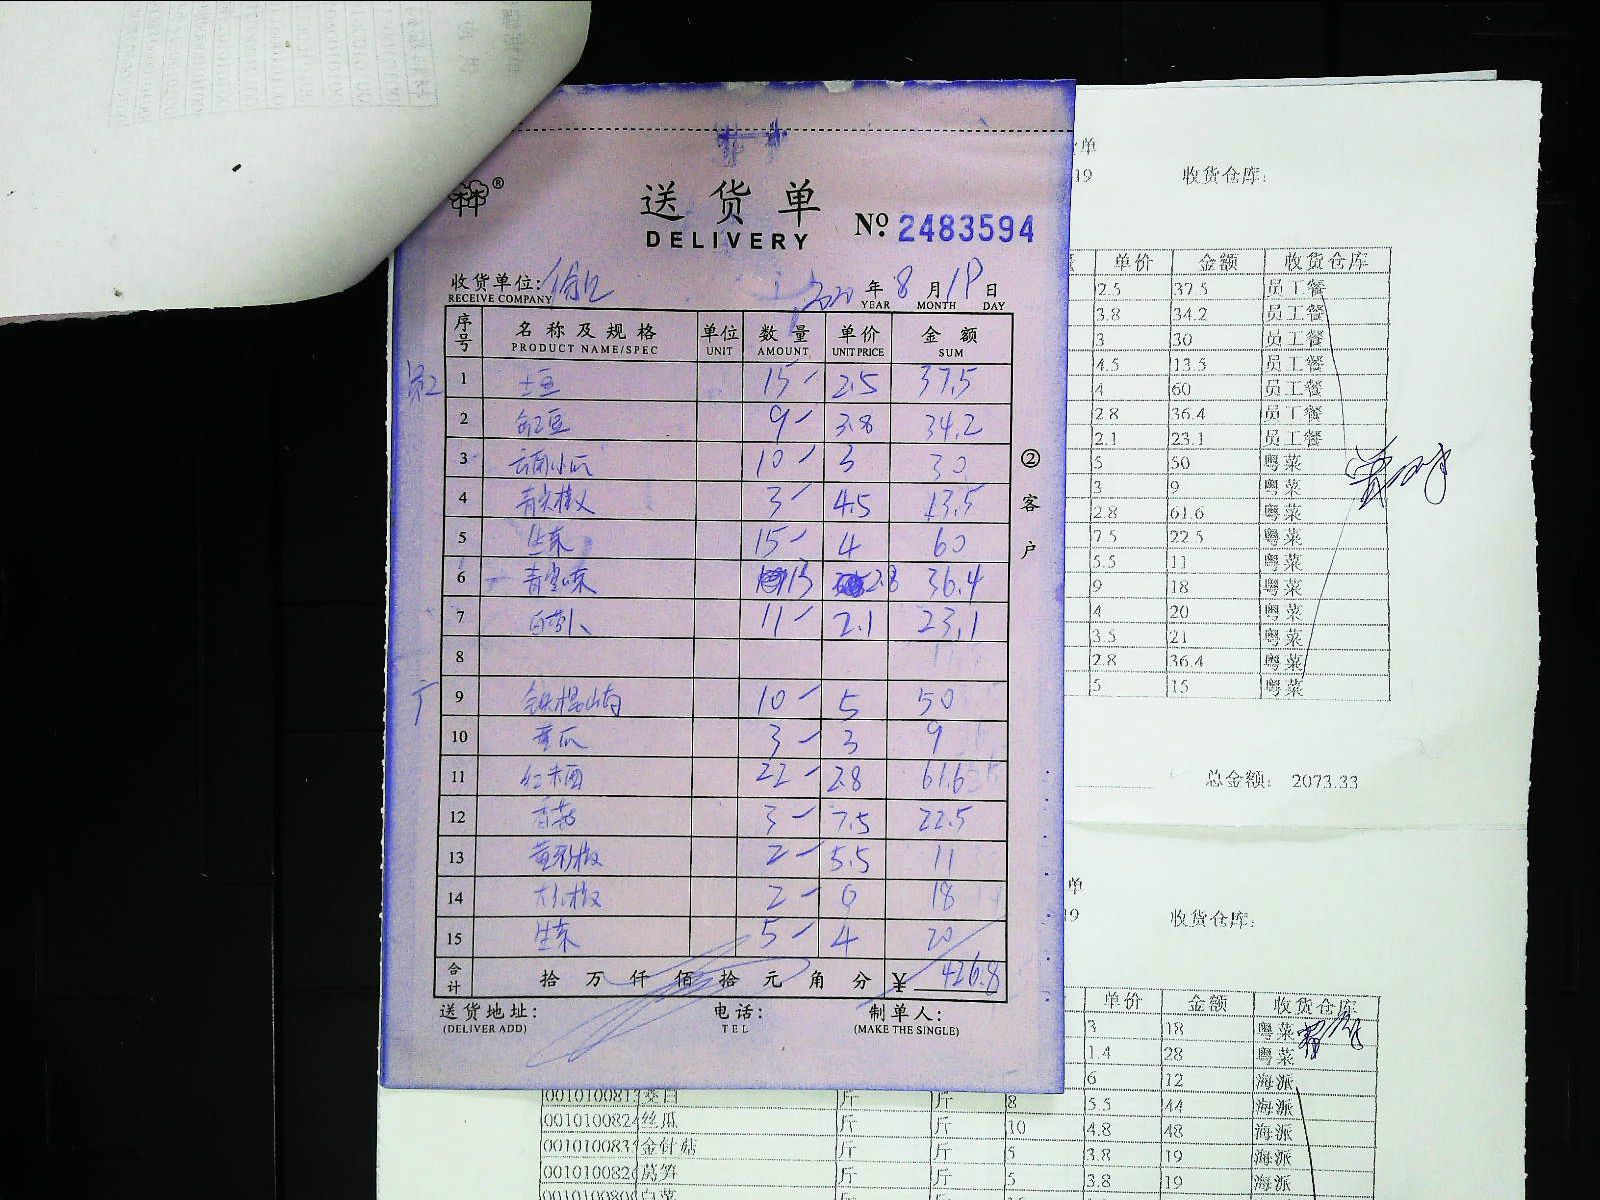 送货单
DELIVERY
No. 2483594
收货单位:
RECEIVE COMPANY
2020 年 8 月 19 日
YEAR MONTH DAY
序号 名称及规格 单位 数量 单价 金额
PRODUCT NAME/SPEC UNIT AMOUNT UNIT PRICE SUM
1 土豆 15 2.5 37.5
2 豇豆 9 3.8 34.2
3 10 3 30
4 青尖椒 3 4.5 13.5
5 生菜 15 4 60
6 13 2.8 36.4
7 白萝卜 11 2.1 23.1
8
9 铁棍山药 10 5 50
10 黄瓜 3 3 9
11 22 2.8 61.6
12 3 7.5 22.5
13 黄彩椒 2 5.5 11
14 2 18
15 生菜 5 4 20
合计 拾 万 仟 佰 拾 元 角 分 ¥ 426.8
送货地址: 电话: 制单人:
(DELIVER ADD) TEL (MAKE THE SINGLE)
②客户
单
19 收货仓库:
单价 金额 收货仓库
2.5 37.5 员工餐
3.8 34.2 员工餐
3 30 员工餐
4.5 13.5 员工餐
4 60 员工餐
2.8 36.4 员工餐
2.1 23.1 员工餐
5 50 粤菜
3 9 粤菜
2.8 61.6 粤菜
7.5 22.5 粤菜
5.5 11 粤菜
9 18 粤菜
4 20 粤菜
3.5 21 粤菜
2.8 36.4 粤菜
5 15 粤菜
总金额: 2073.33
单
19 收货仓库:
单价 金额 收货仓库
3 18 粤菜
1.4 28 粤菜
6 12 海派
斤 斤 8 5.5 44 海派
丝瓜 斤 斤 10 4.8 48 海派
金针菇 斤 斤 5 3.8 19 海派
莴笋 斤 斤 5 3.8 19 海派
白菜